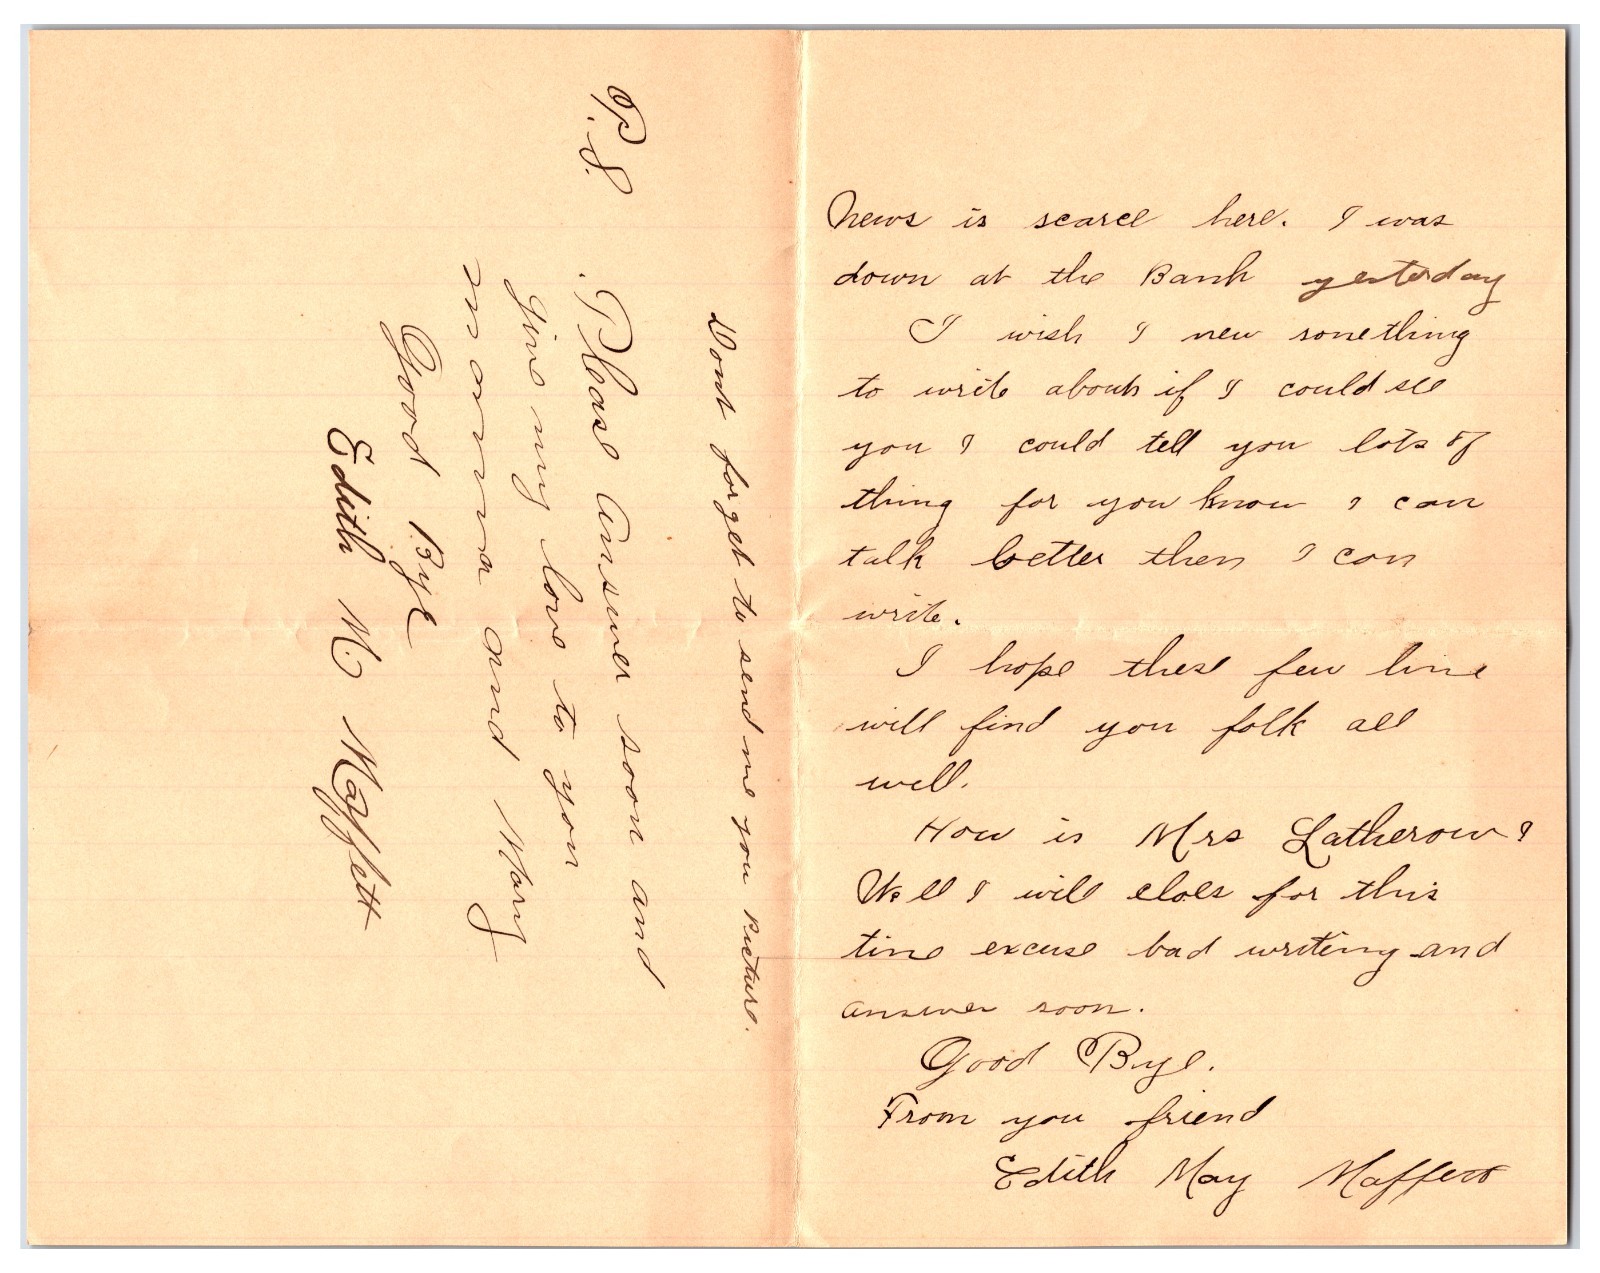 News is scarce here. I was
down at the Bank yesterday
I wish I new something
to write about if I could see
you I could tell you lots of
thing for you know I can
talk better then I can
write.
I hope these few line
will find you folk all
well.
How is Mrs Latherow?
Well I will cloes for this
time excuse bad writing and
answer soon.
Good Bye.
From you friend
Edith May Maffett
Dont forget to send me you picture.
P.S.
Please answer soon and
Give my love to you
mamma and Mary
Good Bye
Edith M. Maffett